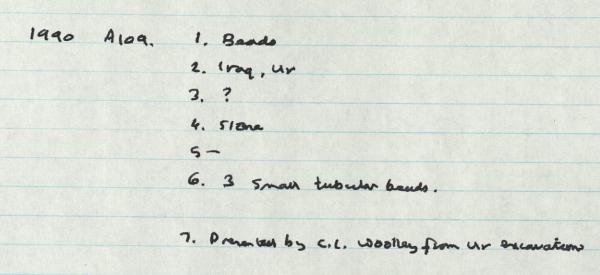 1990 A109. 1. Beads
2. Iraq, Ur
3. ?
4. Stone
5 —
6. 3 small tubular beads.
7. Presented by C.L. Woolley from Ur excavations